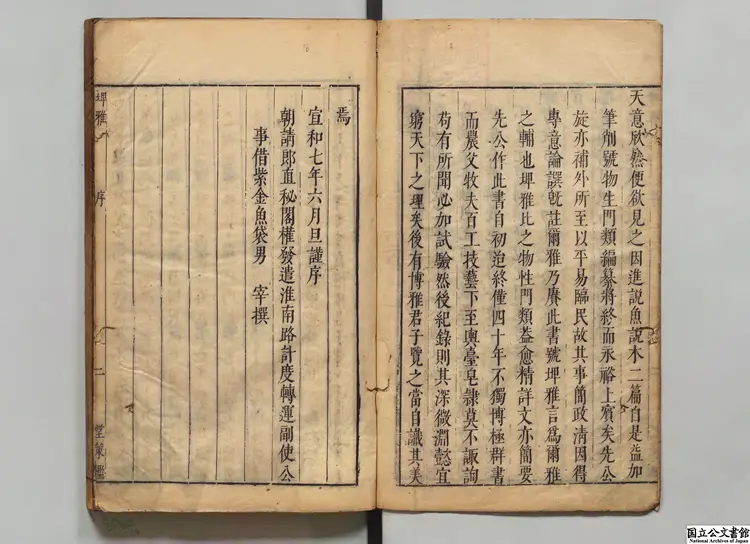 天意欣然便欲見之因進說魚說木二篇自是益加
筆削號物生門類編纂將終而永裕上賓矣先公
旋亦補外所至以平易臨民故其事簡政清因得
專意論譔旣註爾雅乃賡此書號埤雅言爲爾雅
之輔也埤雅比之物性門類蓋愈精詳文亦簡要
先公作此書自初迨終僅四十年不獨博極群書
而農父牧夫百工技藝下至輿臺皂隸莫不諏詢
苟有所聞必加試驗然後紀錄則其深微淵懿宜
窮天下之理矣後有博雅君子覽之當自識其美
焉
宣和七年六月旦謹序
朝請郎直秘閣權發遣淮南路計度轉運副使公
事借紫金魚袋男 宰撰
埤雅 序 二
国立公文書館
National Archives of Japan